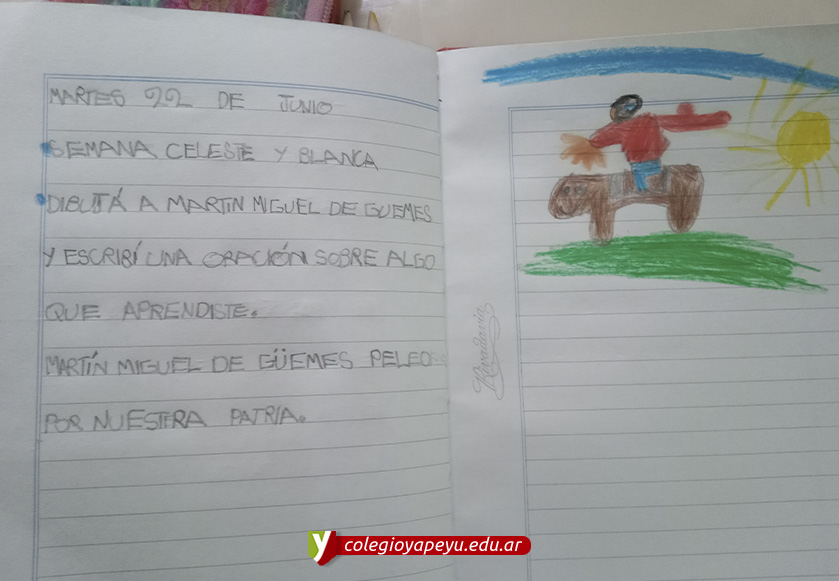 MARTES 22 DE JUNIO
SEMANA CELESTE Y BLANCA
DIBUJÁ A MARTIN MIGUEL DE GUEMES
Y ESCRIBÍ UNA ORACIÓN SOBRE ALGO
QUE APRENDISTE.
MARTÍN MIGUEL DE GÜEMES PELEO
POR NUESTERA PATRIA.
Rivadavia
y colegioyapeyu.edu.ar